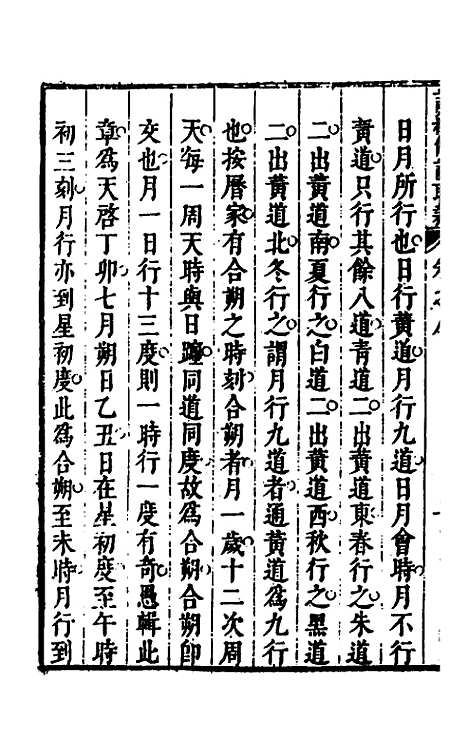 日月所行也日行黄道月行九道日月會時月不行
黄道只行其餘八道青道二出黄道東春行之朱道
二出黄道南夏行之白道二出黄道西秋行之黑道
二出黄道北冬行之謂月行九道者通黄道爲九行
也按曆家有合朔之時刻合朔者月一歲十二次周
天每一周天時與日躔同道同度故爲合朔合朔卽
交也月一日行十三度則一時行一度有奇愚輯此
章爲天啓丁卯七月朔日乙丑日在星初度至午時
初三刻月行亦到星初度此爲合朔至未時月行到